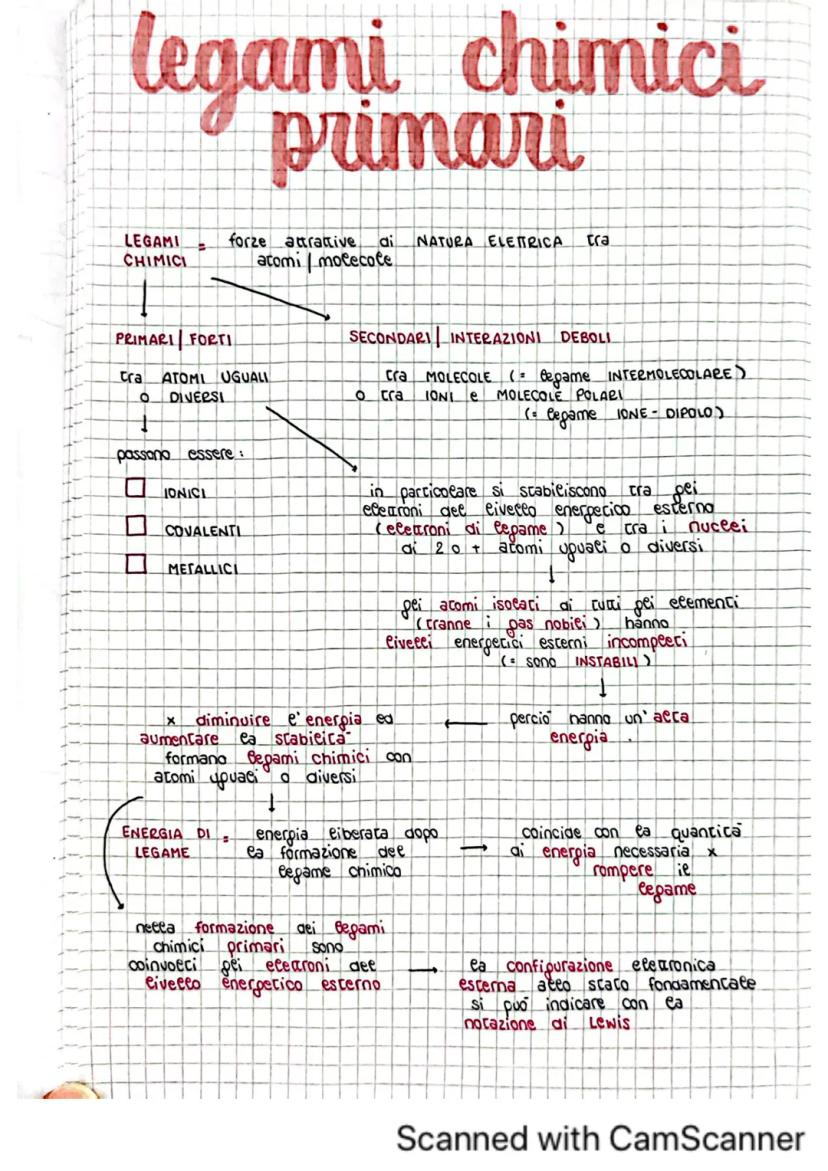 legami chimici
primari
LEGAMI = forze attrattive di NATURA ELETTRICA tra
CHIMICI atomi | molecole
PRIMARI | FORTI
SECONDARI | INTERAZIONI DEBOLI
tra ATOMI UGUALI
o DIVERSI
tra MOLECOLE (= legame INTERMOLECOLARE)
o tra IONI e MOLECOLE POLARI
(= legame IONE - DIPOLO)
possono essere:
IONICI
COVALENTI
METALLICI
in particolare si stabiliscono tra gli
elettroni del livello energetico esterno
(elettroni di legame) e tra i nuclei
di 2 o + atomi uguali o diversi
gli atomi isolati di tutti gli elementi
(tranne i gas nobili) hanno
livelli energetici esterni incompleti
(= sono INSTABILI)
perciò hanno un'alta
energia.
x diminuire l'energia ed
aumentare la stabilità
formano legami chimici con
atomi uguali o diversi
ENERGIA DI = energia liberata dopo
LEGAME la formazione del
legame chimico
coincide con la quantità
di energia necessaria x
rompere il
legame
nella formazione dei legami
chimici primari sono
coinvolti gli elettroni del
livello energetico esterno
la configurazione elettronica
esterna allo stato fondamentale
si può indicare con la
notazione di Lewis
Scanned with CamScanner